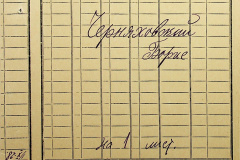 Черняховский
Борис
на 1 лист.